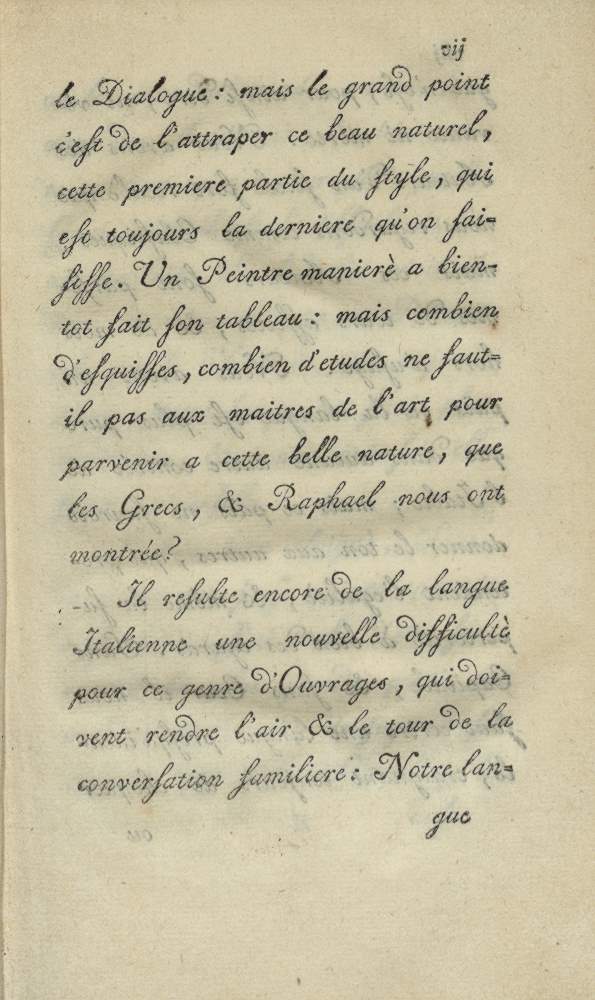 vij
le Dialogué : mais le grand point
c'eſt de l'attraper ce beau naturel,
cette premiere partie du ſtyle, qui
eſt toujours la derniere qu'on ſai=
ſiſſe. Un Peintre manierè a bien-
tot fait ſon tableau : mais combien
d'eſquiſſes, combien d'etudes ne faut=
il pas aux maitres de l'art pour
parvenir a cette belle nature, que
les Grecs, & Raphael nous ont
montrée?
Il reſulte encore de la langue
Italienne une nouvelle difficultè
pour ce genre d'Ouvrages, qui doi=
vent rendre l'air & le tour de la
converſation familiere : Notre lan=
gue